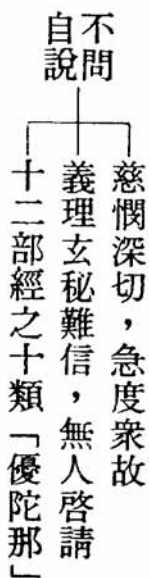 不問
自說
慈憫深切，急度眾故
義理玄秘難信，無人啓請
十二部經之十類「優陀那」